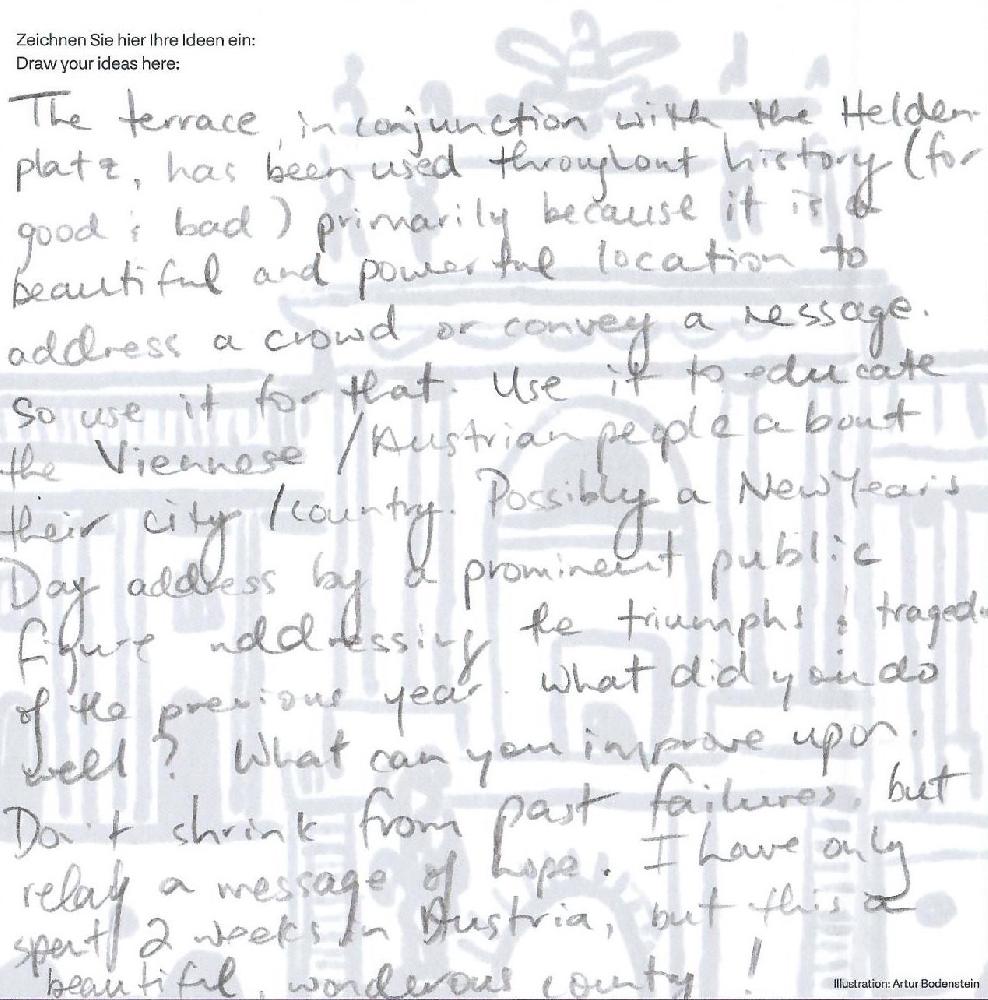 Zeichnen Sie hier Ihre Ideen ein:
Draw your ideas here:
The terrace, in conjunction with the Helden-
platz, has been used throughout history (for
good & bad) primarily because it is a
beautiful and powerful location to
address a crowd or convey a message.
So use it for that. Use it to educate
the Viennese / Austrian people about
their city / country. Possibly a New Years
Day address by a prominent public
figure addressing the triumphs & traged
of the previous year. What did you do
well? What can you improve upon.
Don't shrink from past failures, but
relay a message of hope. I have only
spent 2 weeks in Austria, but this a
beautiful, wonderous county!
Illustration: Artur Bodenstein